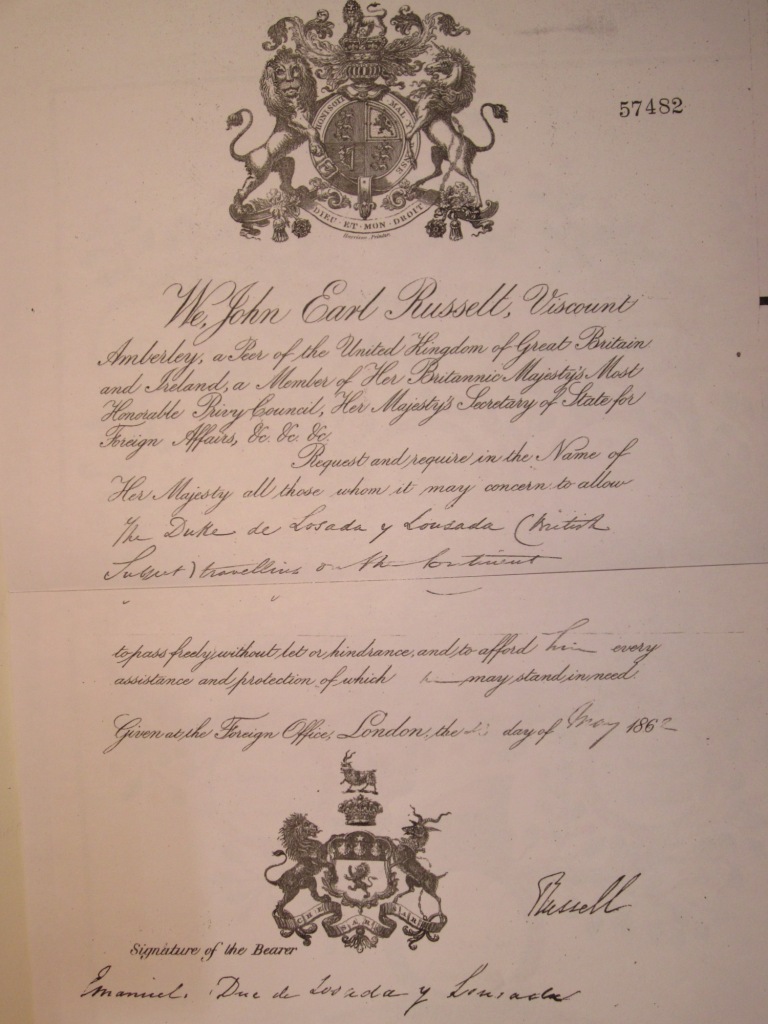 57482
HONI SOIT MAL Y PENSE
DIEU·ET·MON·DROIT
We, John Earl Russell, Viscount
Amberley, a Peer of the United Kingdom of Great Britain
and Ireland, a Member of Her Britannic Majesty's Most
Honorable Privy Council, Her Majesty's Secretary of State for
Foreign Affairs, &c. &c. &c.
Request and require in the Name of
Her Majesty all those whom it may concern to allow
The Duke de Losada y Lousada (British
Subject) travelling on the Continent
to pass freely without let or hindrance, and to afford him every
assistance and protection of which he may stand in need.
Given at the Foreign Office, London, the day of May 1862
CHE SARA SARA
Russell
Signature of the Bearer
Emanuel. Duc de Losada y Lousada